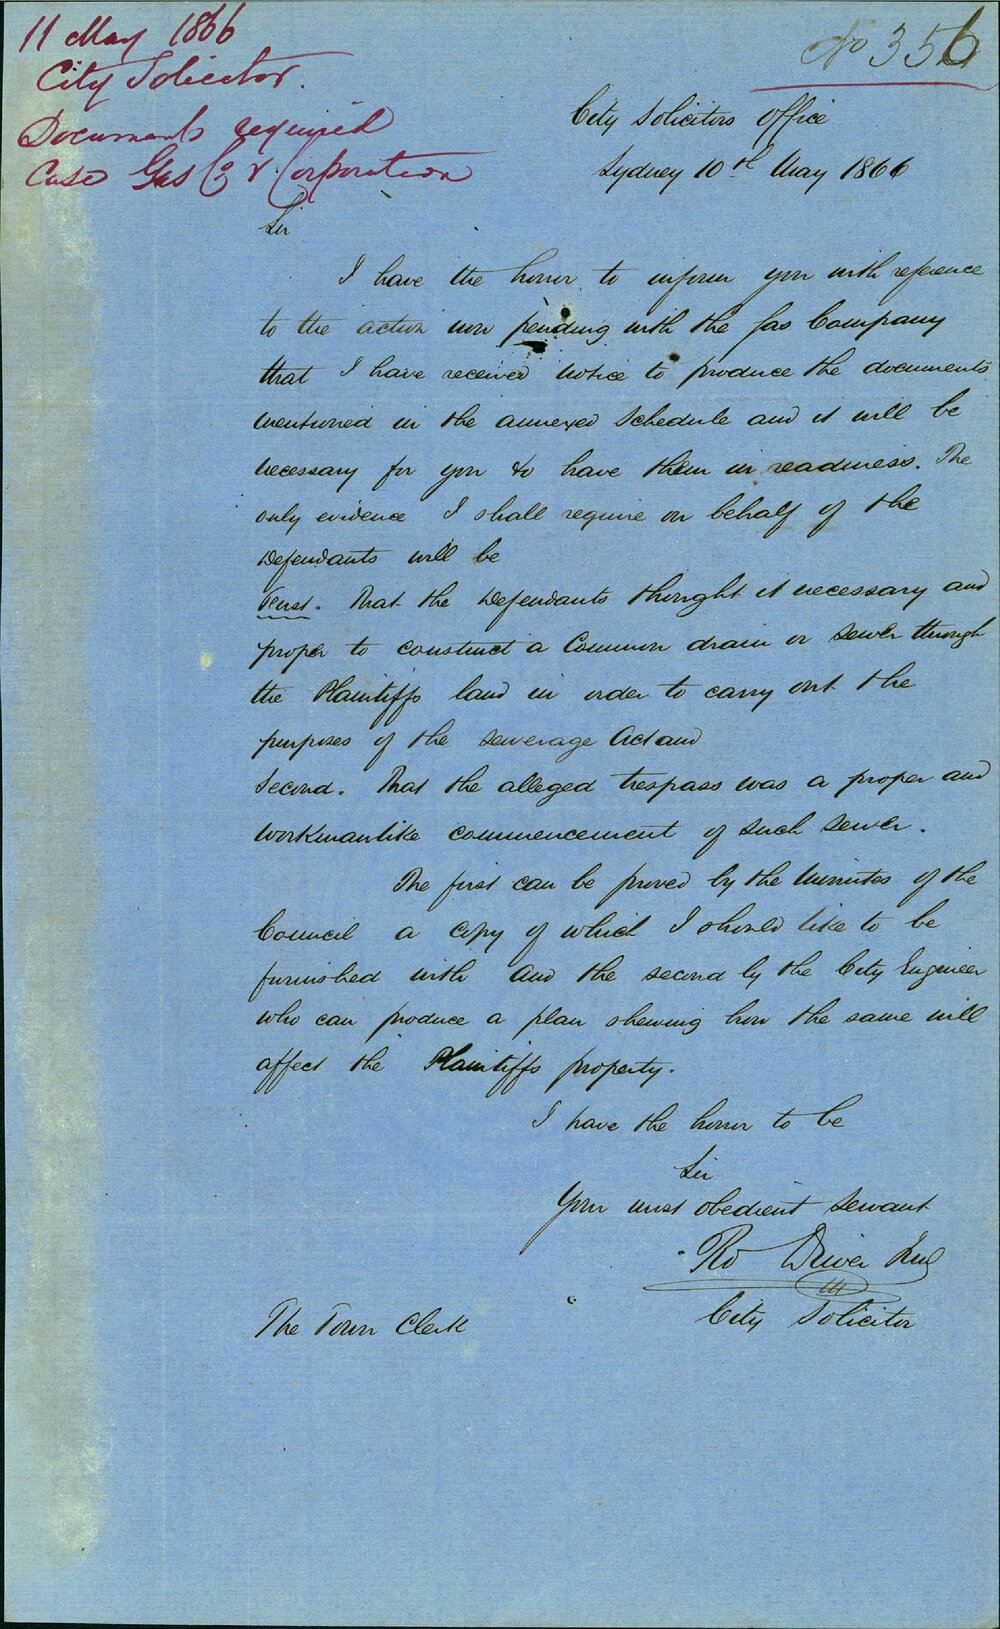 11 May 1866
City Solicitor.
Documents required
Case Gas Co v Corporation
No 356
City Solicitors Office
Sydney 10th May 1866
Sir
I have the honor to inform you with reference
to the action now pending with the Gas Company
that I have received notice to produce the documents
mentioned in the annexed Schedule and it will be
necessary for you to have them in readiness. The
only evidence I shall require on behalf of the
Defendants will be
First. That the Defendants thought it necessary and
proper to construct a Common drain or sewer through
the Plaintiffs land in order to carry out the
purposes of the Sewerage Act and
Second. That the alleged trespass was a proper and
workmanlike commencement of such sewer.
The first can be proved by the Minutes of the
Council a copy of which I should like to be
furnished with and the second by the City Engineer
who can produce a plan shewing how the same will
affect the Plaintiffs property.
I have the honor to be
Sir
Your most obedient servant
Rd Driver Jun
City Solicitor
The Town Clerk